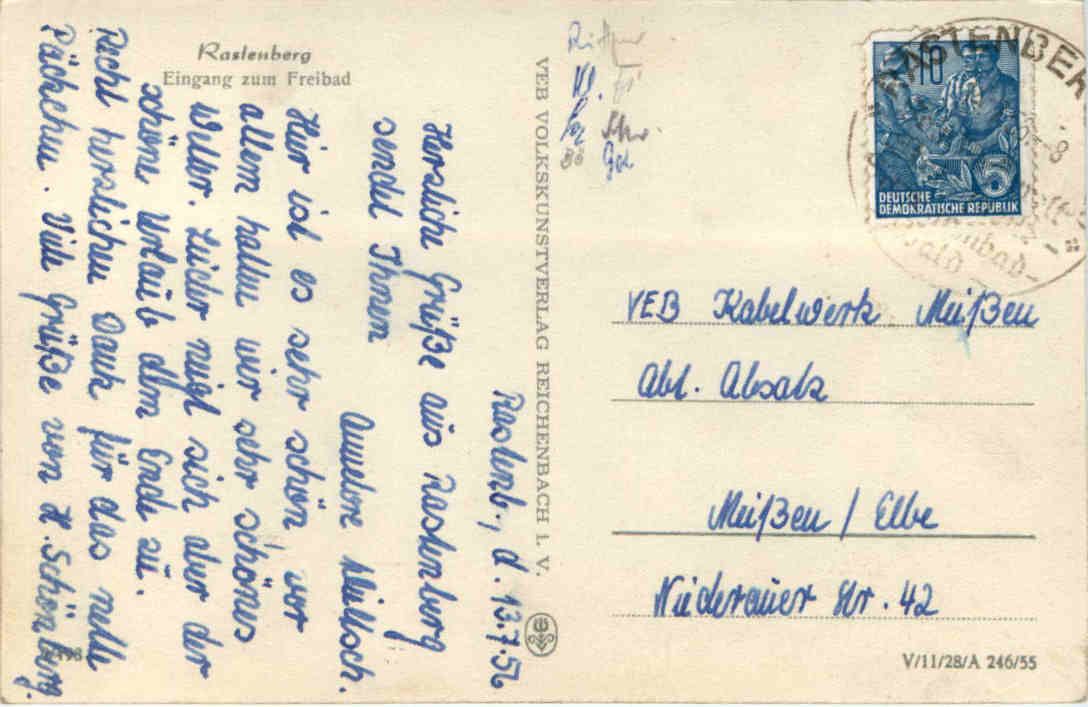 Rastenberg
Eingang zum Freibad
Rastenb., d. 13.7.56
Herzliche Grüße aus Rastenberg
sendet Ihnen
Annelore
Hier ist es sehr schön, vor
allem hatten wir sehr schönes
Wetter. Leider neigt sich aber der
schöne Urlaub dem Ende zu.
Recht herzlichen Dank für das nette
Päckchen. Viele Grüße von H. Schönburg.
VEB VOLKSKUNSTVERLAG REICHENBACH I. V.
RASTENBER
10
5
DEUTSCHE
DEMOKRATISCHE REPUBLIK
VEB Kabelwerk Meißen
Abt. Absatz
Meißen / Elbe
Niederauer Str. 42
V/11/28/A 246/55